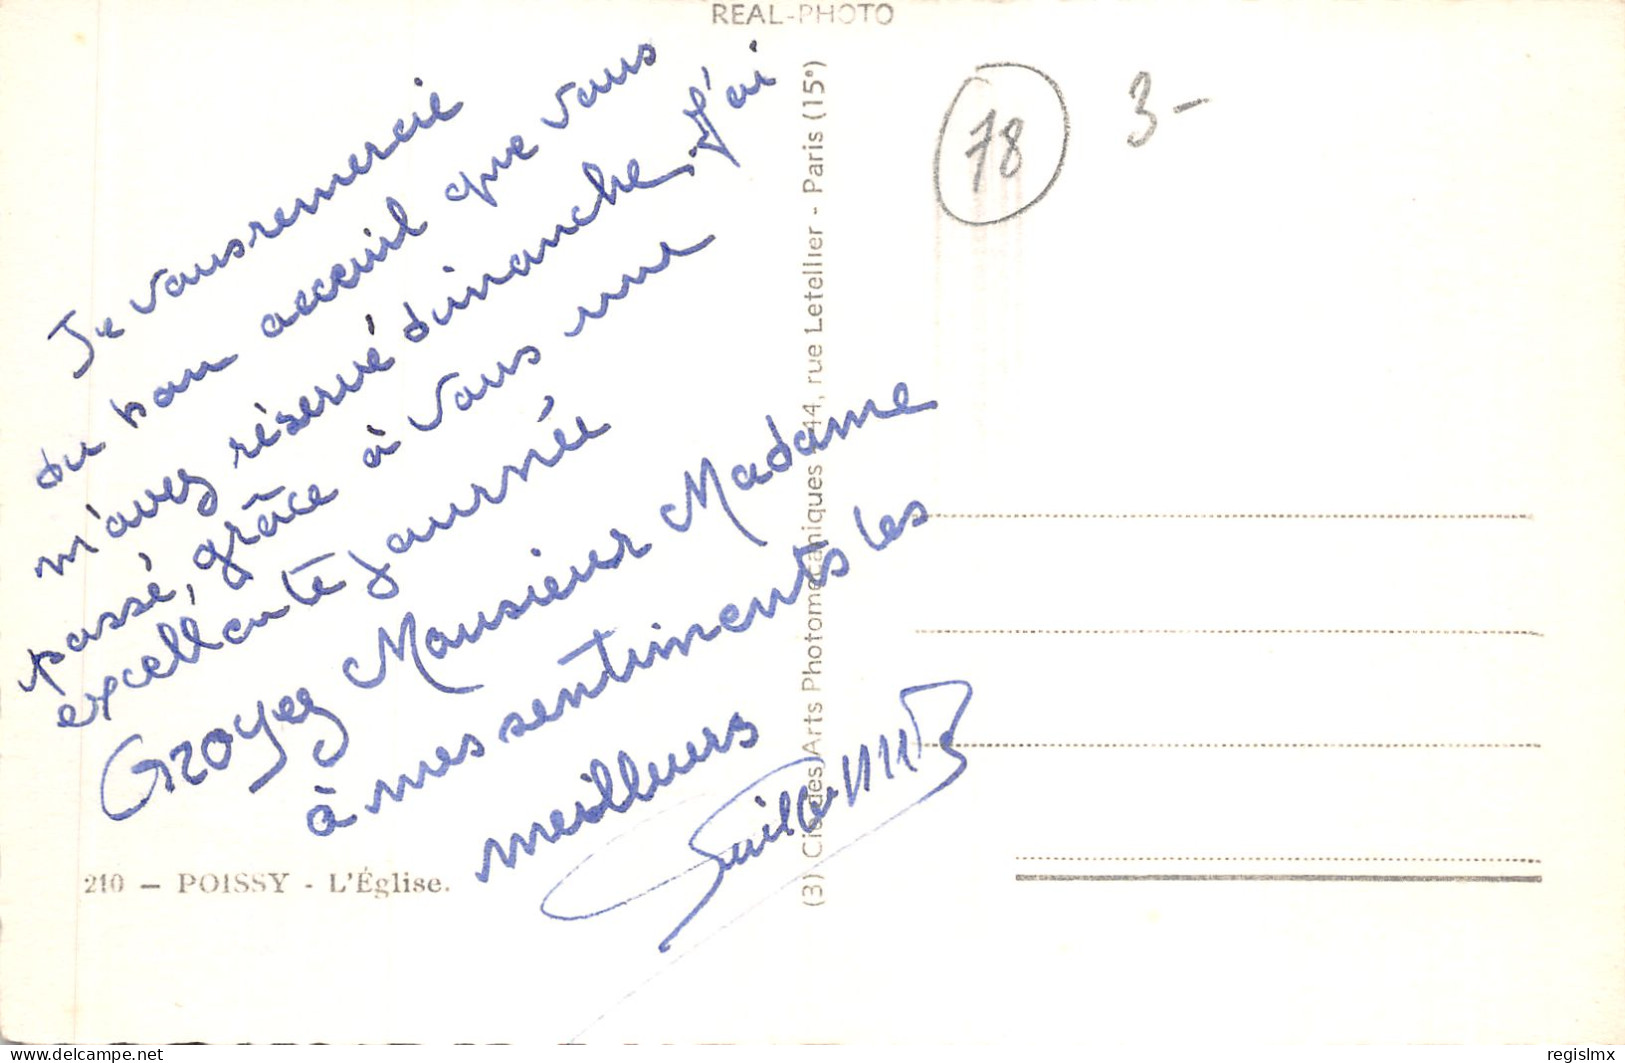 REAL-PHOTO
Je vous remercie
du bon acceuil que vous
m'avez réservé dimanche. J'ai
passé, grâce à vous une
excéllente journée
Croyez Monsieur Madame
à mes sentiments les
meilleurs
210 — POISSY - L'Église.
(3) Cie des Arts Photomécaniques 44, rue Letellier - Paris (15e)
78
3-
delcampe.net
regislmx